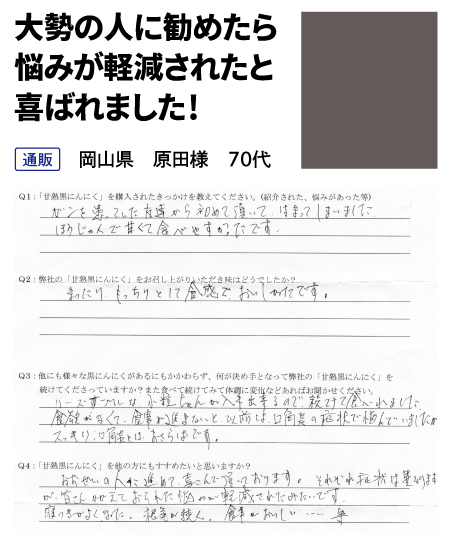 大勢の人に勧めたら
悩みが軽減されたと
喜ばれました！
通販 岡山県 原田様 70代
Q1：「甘熟黒にんにく」を購入されたきっかけを教えてください。(紹介された、悩みがあった等)
ガンを患っていた友達から初めて頂いて、はまってしまいました。
ほうじゅんで甘くて食べやすかったです。
Q2：弊社の「甘熟黒にんにく」をお召し上がりいただき味はどうでしたか？
まったり、もっちりとして食感でおいしかったです。
Q3：他にも様々な黒にんにくがあるにもかかわらず、何が決め手となって弊社の「甘熟黒にんにく」を
続けてくださっていますか？また食べて続けてみて体調に変化などあればお聞かせください。
リーズナブルな が入手出来るので続けて食べれました。
食欲がなくて、食事が進まないと以前は、口角炎の症状で悩んでいましたが
スッキリ、口角炎とは、おさらばです。
Q4：「甘熟黒にんにく」を他の方にもすすめたいと思いますか？
おおぜいの人に進めて、喜こんで頂いております。それぞれ症状は異なります
が、皆さんかかえておられた悩みが軽減されたみたいです。
がよくなった、 、食事がおいしい…… 等